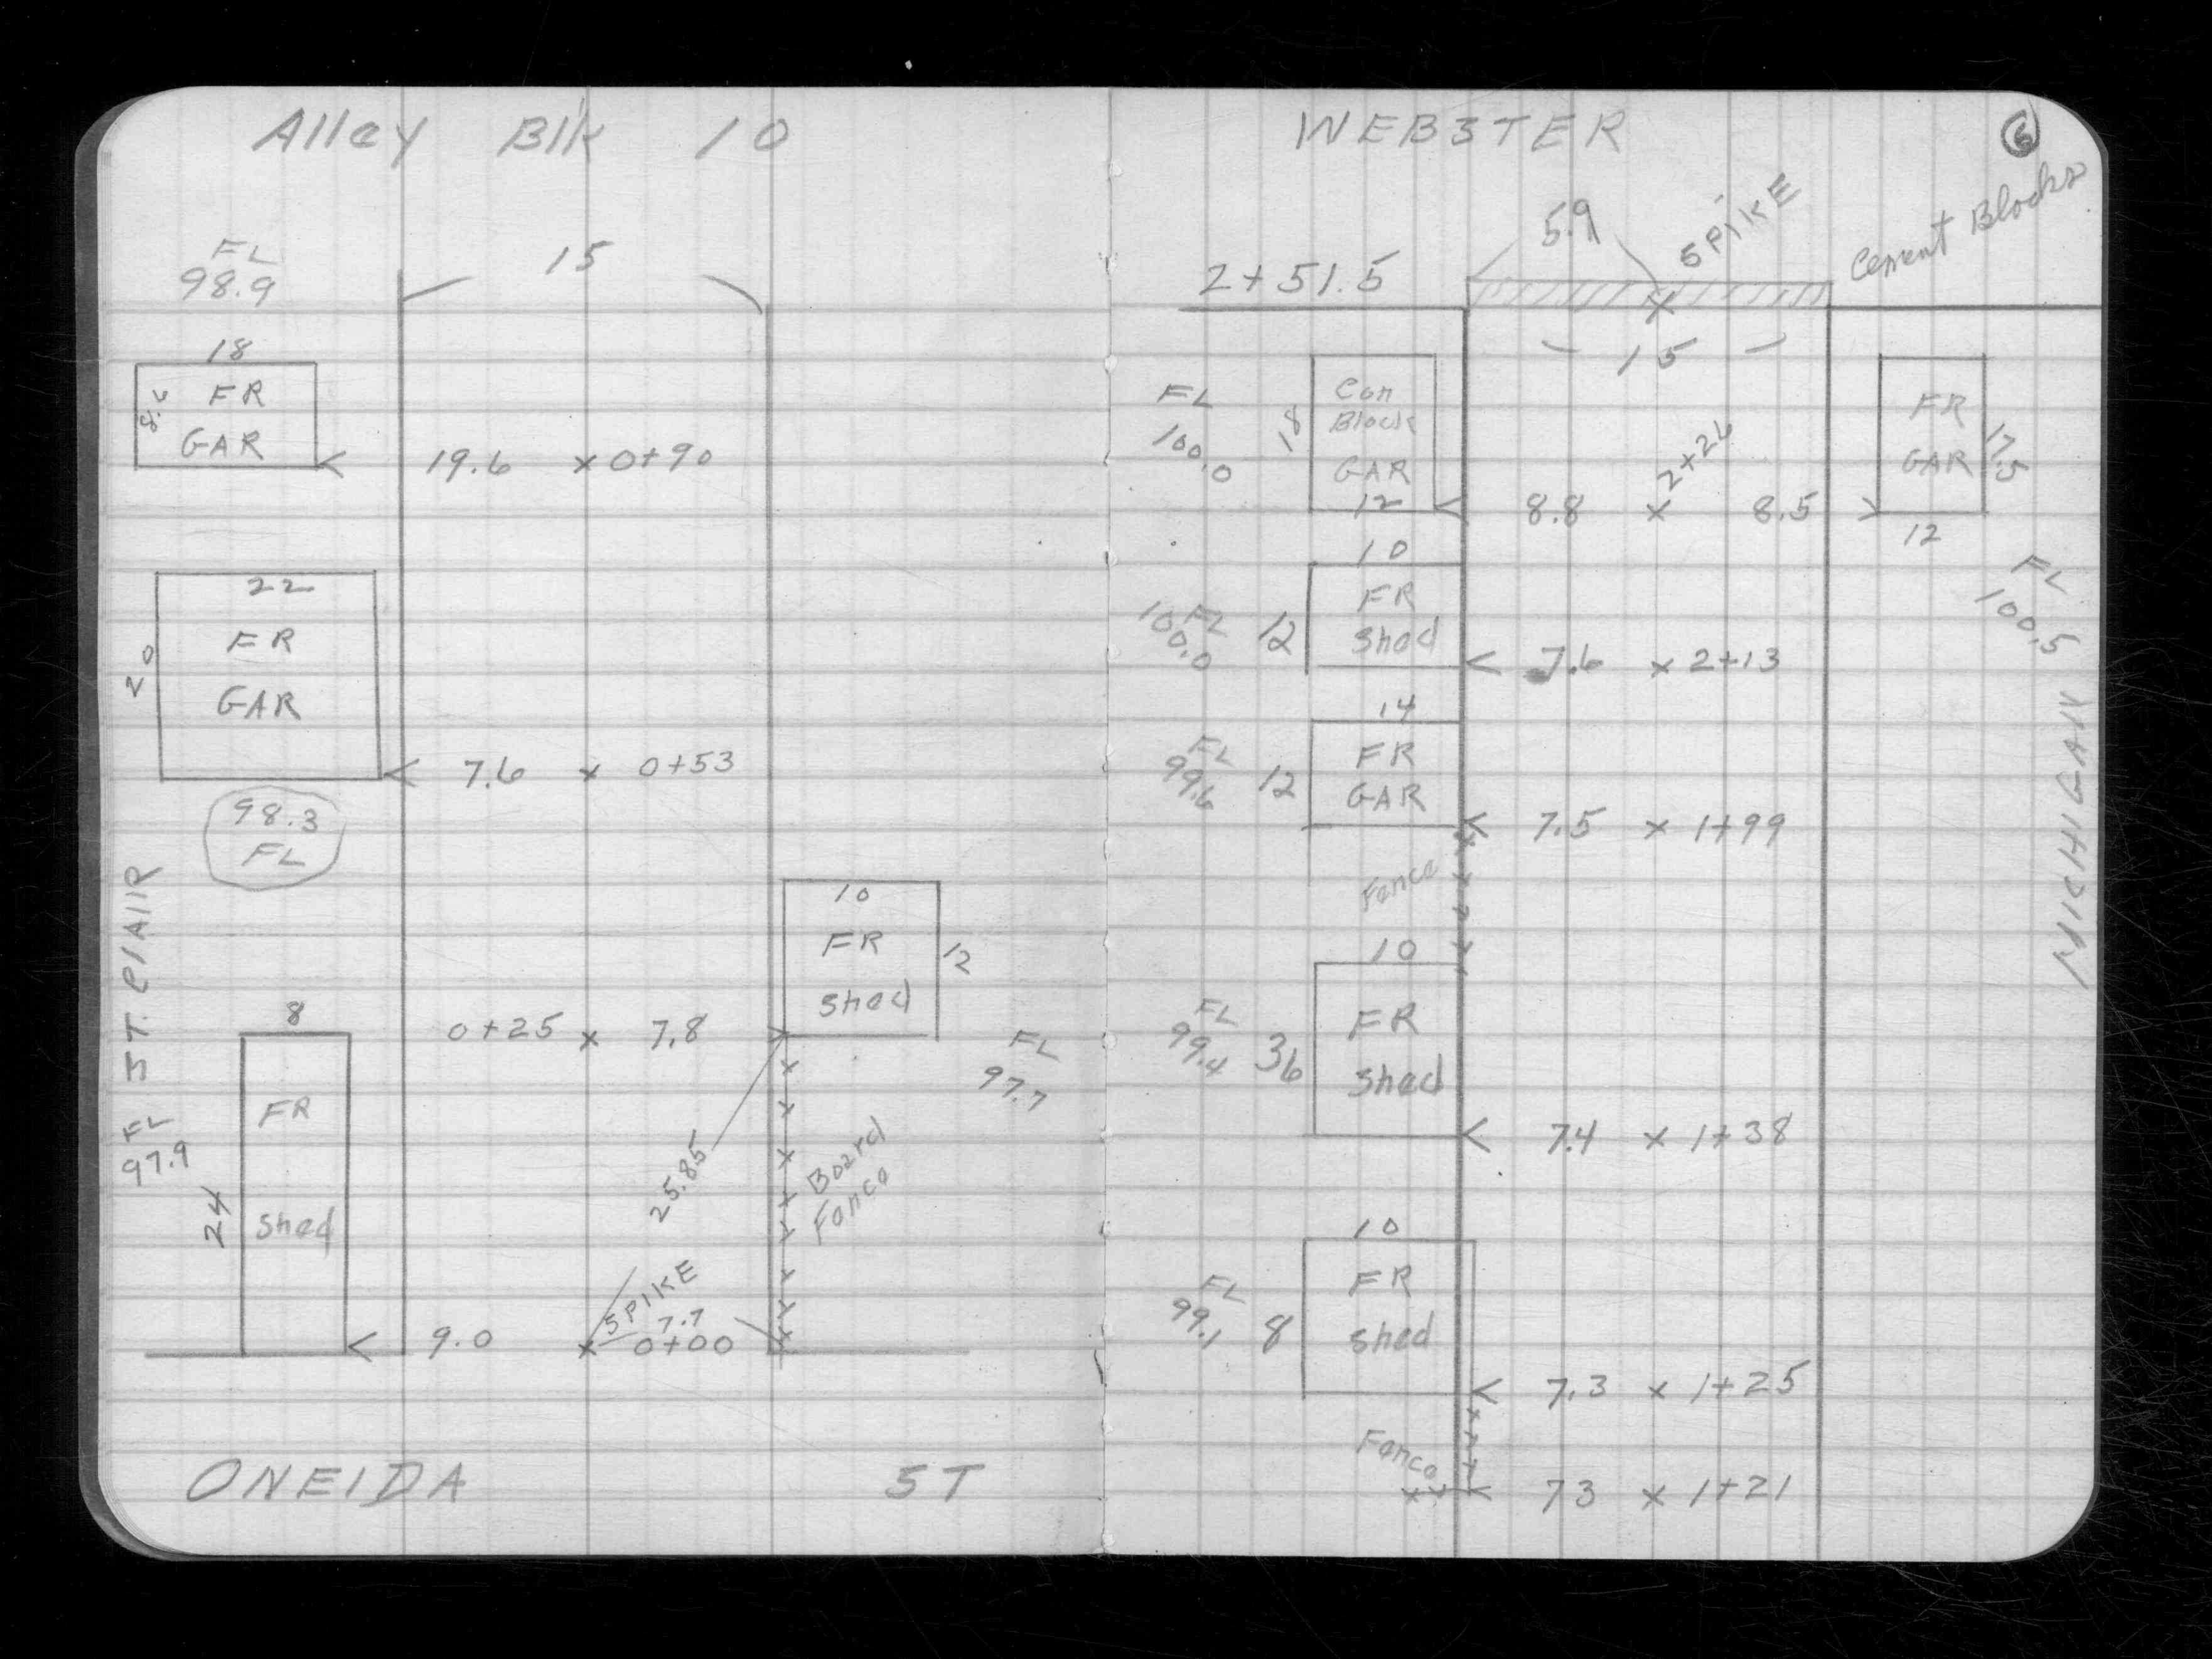 Alley Blk 10
FL
98.9
15
18
FR
GAR
19.6 x 0+90
22
20
FR
GAR
7.6 x 0+53
98.3
FL
10
FR
Shed
12
ST. CLAIR
8
0+25 x 7.8
FL
97.7
FR
Shed
FL
97.9
24
25.85
Board
Fence
SPIKE
7.7
9.0 x 0+00
ONEIDA ST
WEBSTER
6
Cement Blocks
5.9
SPIKE
2+51.5
15
FL
100.0
18
Con
Block
GAR
12
FR
GAR
17.5
12
8.8 x 2+26 8.5
FL
100.5
10
FL
100.0
12
FR
Shed
7.6 x 2+13
14
FL
99.6
12
FR
GAR
7.5 x 1+99
MICHIGAN
Fence
10
FL
99.4
36
FR
Shed
7.4 x 1+38
10
FL
99.1
8
FR
Shed
7.3 x 1+25
Fence
73 x 1+21